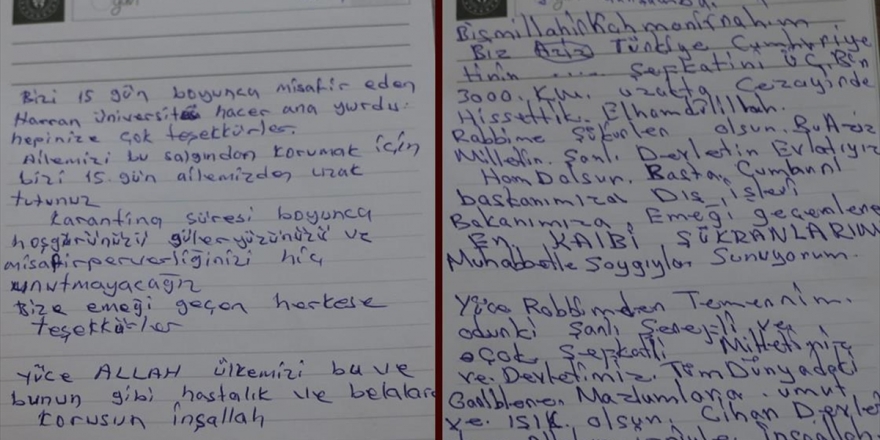 Bizi 15 gün boyunca misafir eden
Harran üniversitesi hacer ana yurdu.
hepinize çok teşekkürler.
Ailemizi bu salgından korumak için
bizi 15 gün ailemizden uzak
tutunuz
karantina süresi boyunca
hoşgörünüzü güleryüzünüzü ve
misafirperverliginizi hiç
unutmayacağız
Bize emeği geçen herkese
teşekkürler
Yüce ALLAH ülkemizi bu ve
bunun gibi hastalık ve belalardan
korusun inşallah
BismillahirRahmanirrahim
Biz Aziz Türkiye Cumhuriye
tinin .... Şefkatini ÜÇ Bin
3000. KM. uzakta Cezayinde
Hissettik. Elhamdülillah.
Rabbime Şükürler olsun. Bu Aziz
Milletin. Şanlı Devletin Evlatıyız
Hamdolsun. Başta Cumhurri
başkanımıza Dış işleri
Bakanımıza. Emeği geçenlere
En KALBİ ŞÜKRANLARIMI
Muhabbetle Saygıyla Sunuyorum.
Yüce Rabbimden Temennim.
odurki Şanlı Şerefli ve
çok Şefkatli Milletimiz
ve. Devletimiz. Tüm Dünyadaki
Garibleren Mazlumlara. umut
ve. IŞIK. olsun. Cihan Devlet
inşallah